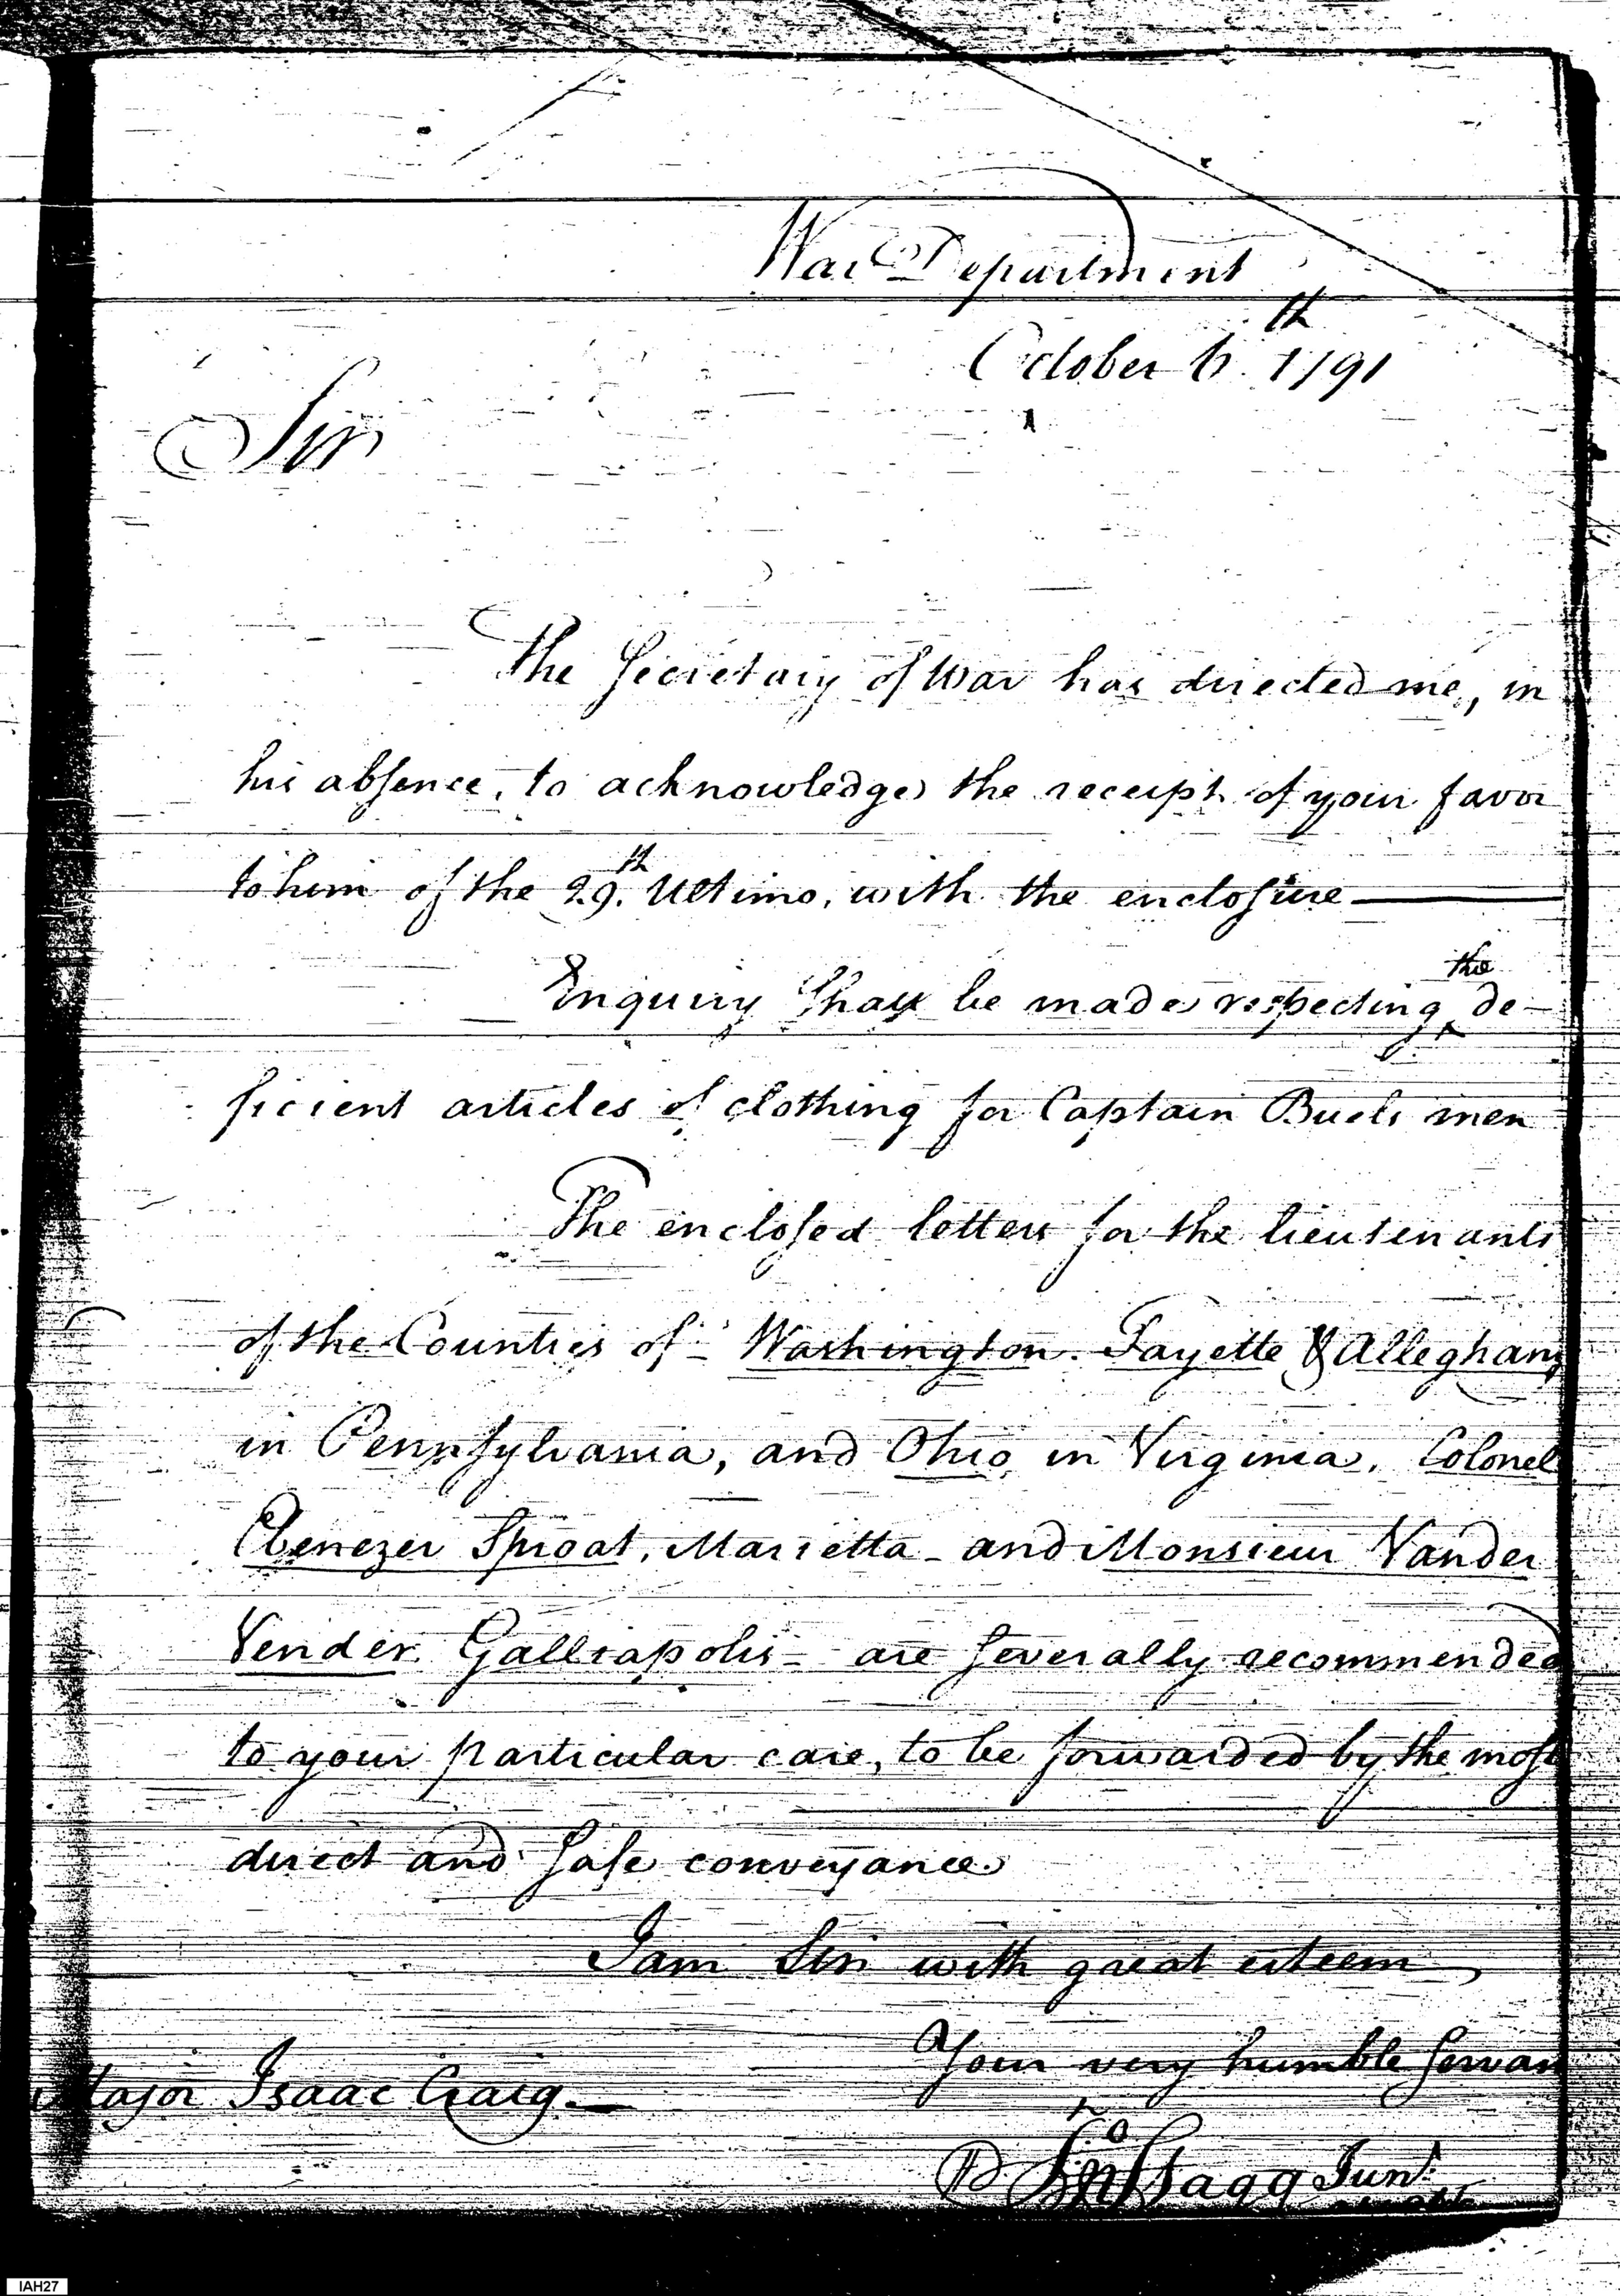 War Department
October 6th. 1791
Sir
The Secretary of War has directed me, in
his absence, to acknowledge the receipt of your favor
to him of the 29th. Ultimo, with the enclosure
Enquiry shall be made respecting the de-
ficient articles of clothing for Captain Buels men
The enclosed letters for the lieutenants
of the Counties of Washington. Fayette & Alleghany
in Pennsylvania, and Ohio, in Virginia, Colonel
Ebenezer Sproat, Marietta - and Monsieur Vander
Vender. Galliapolis - are severally recommended
to your particular care, to be forwarded by the most
direct and safe conveyance.
I am Sir with great esteem
Your very humble Servan
Major Isaac Craig.
Jno Stagg Junr.
IAH27